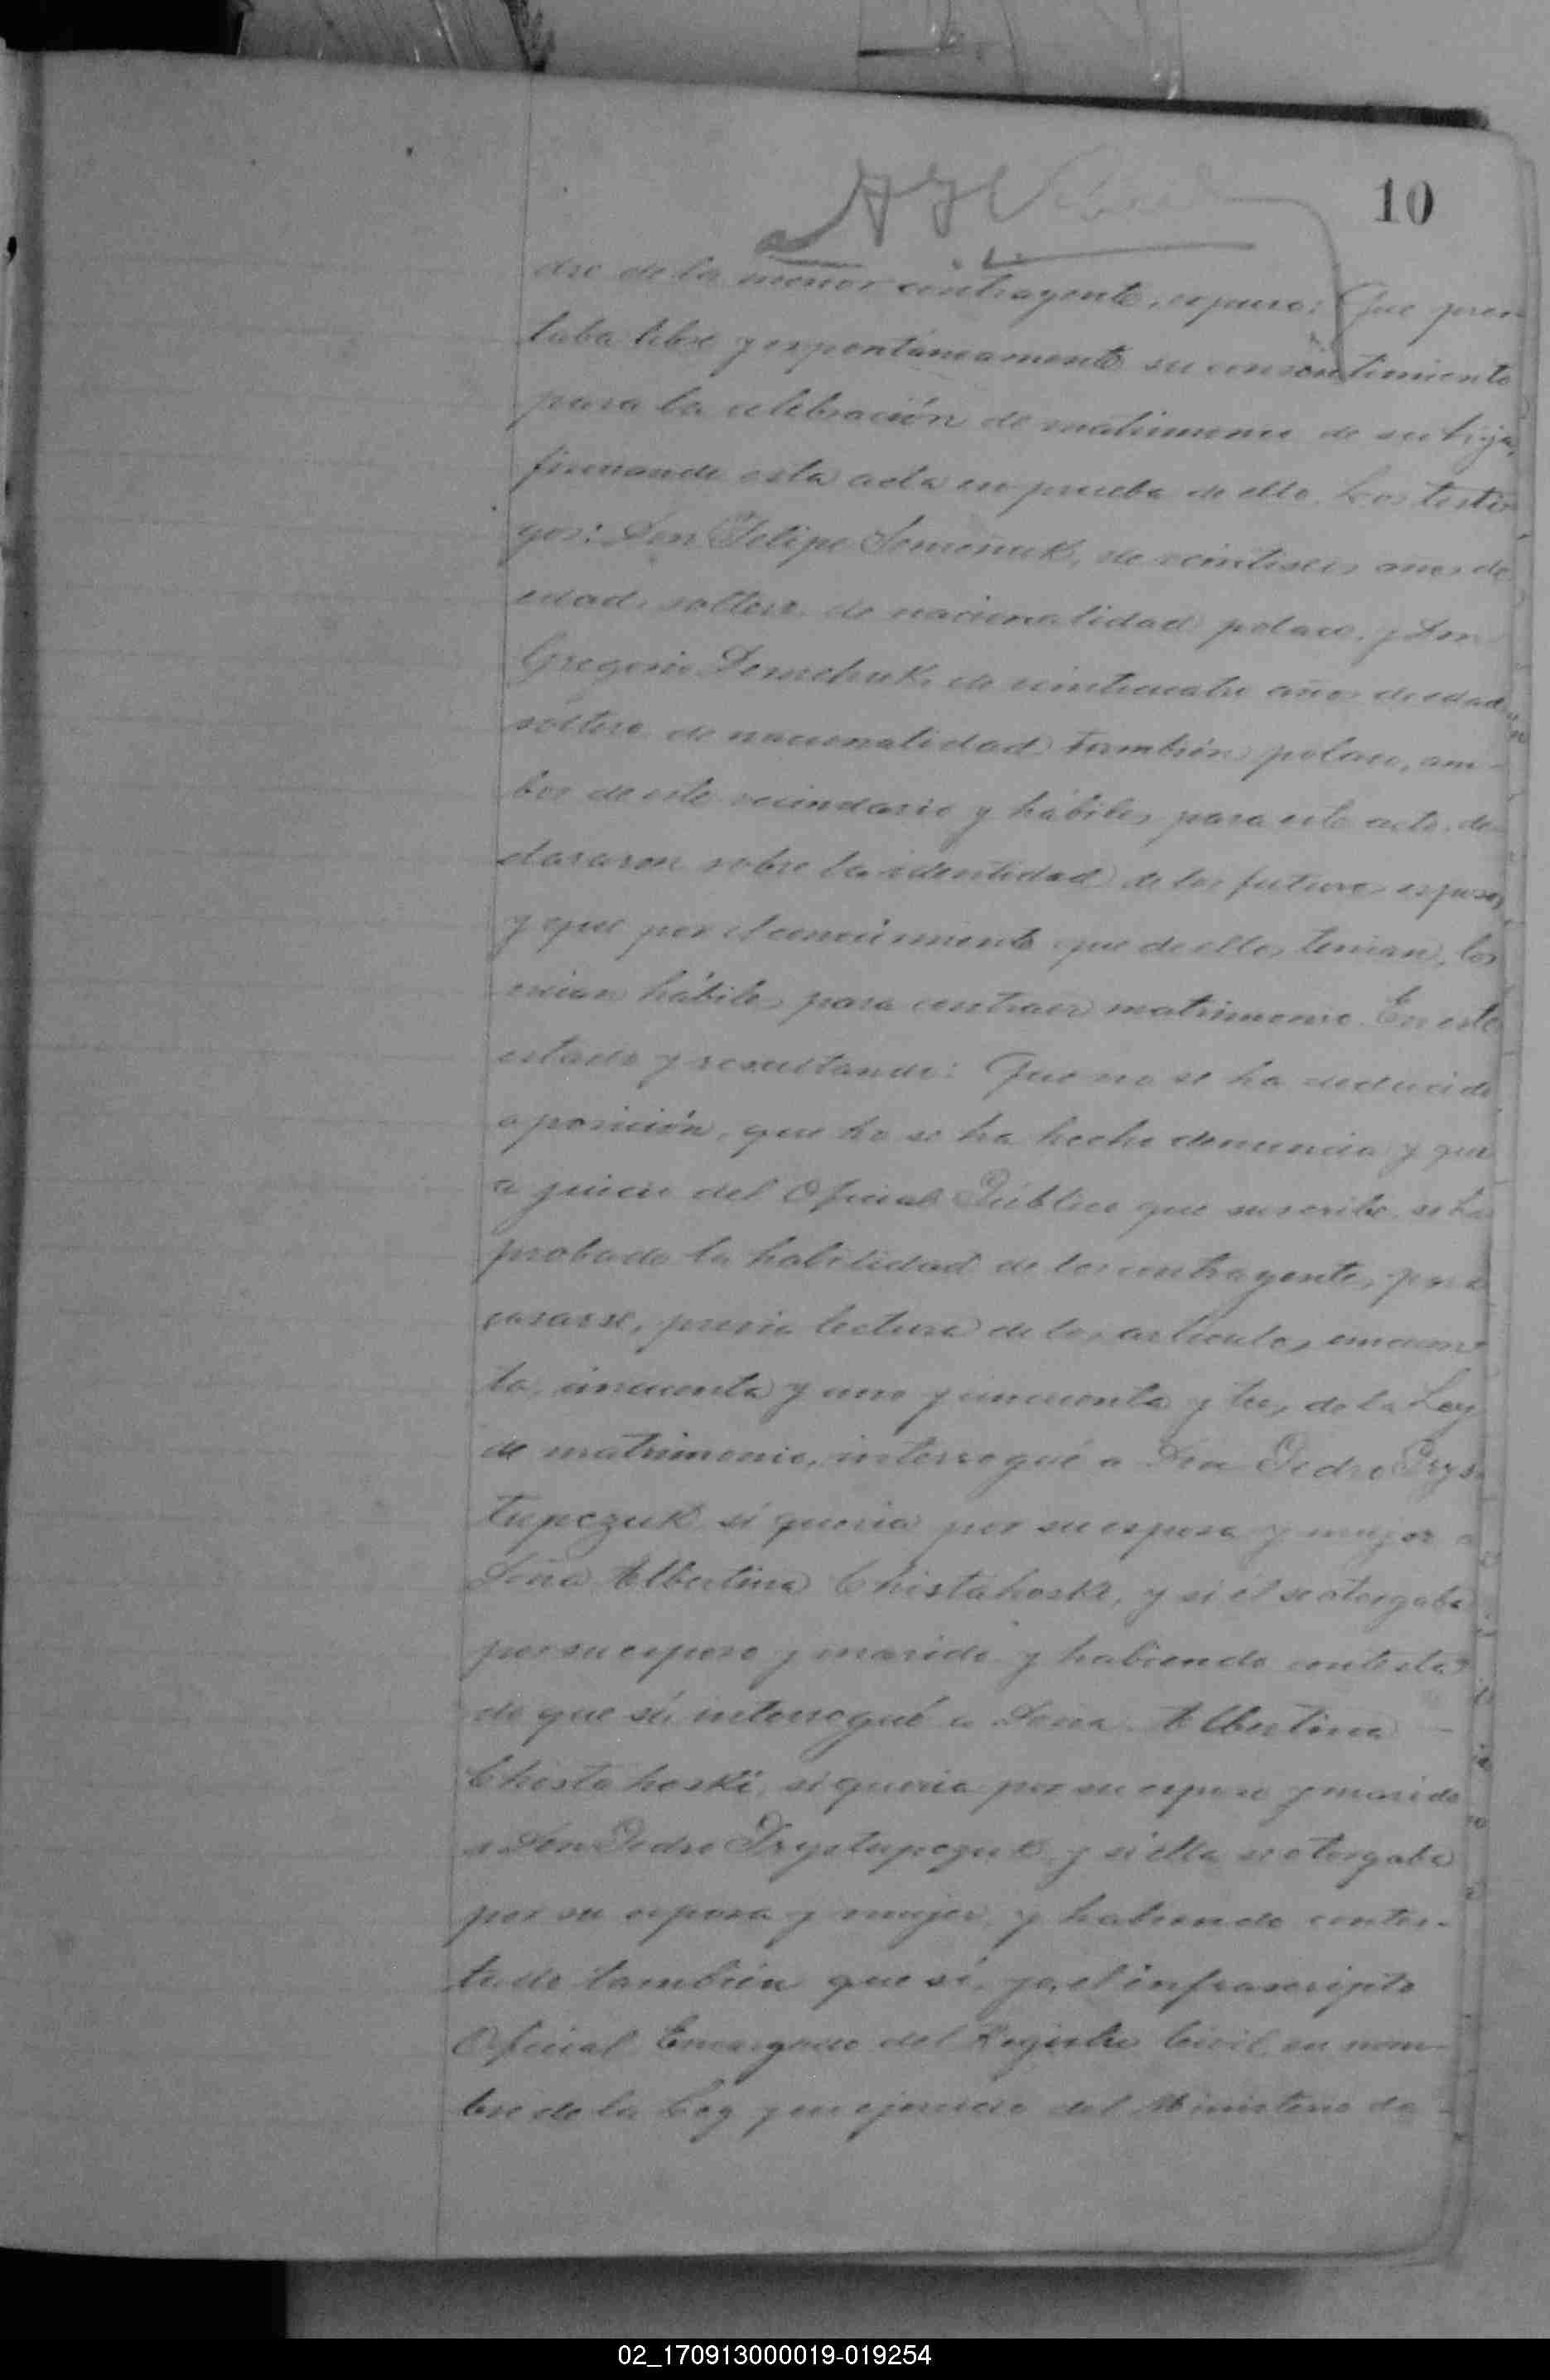 10
dre de la menor contrayente, expuso: Que pres-
taba libre y espontáneamente su consentimiento
para la celebración de matrimonio de su hija,
firmando esta acta en prueba de ello. Los testi-
gos: Don Felipe Semeñuk, de veintiseis años de
edad, soltero, de nacionalidad polaco, y Don
Gregorio Demchuk, de veinticuatro años de edad,
soltero, de nacionalidad también polaco, am-
bos de este vecindario y hábiles para este acto, de-
clararon sobre la identidad de los futuros esposos
y que por el conocimiento que de ellos tenian, los
creian hábiles para contraer matrimonio. En este
estado y resultando: Que no se ha deducido
oposición, que no se ha hecho denuncia y que
a juicio del Oficial Público que suscribe, se ha
probado la habilidad de los contrayentes para
casarse, previa lectura de los articulos cincuen-
ta, cincuenta y uno y cincuenta y tres de la Ley
de matrimonio, interrogué a Don Pedro Prys-
tupczuk si queria por su esposa y mujer a
Doña Albertina Chistahoski, y si él se otorgaba
por su esposo y marido y habiendo contesta-
do que sí, interrogué a Doña Albertina
Chistahoski, si queria por su esposo y marido
a Don Pedro Prystupczuk y si ella se otorgaba
por su esposa y mujer, y habiendo contes-
tado también que sí, yo, el infrascripto
Oficial Encargado del Registro Civil, en nom-
bre de la Ley y en ejercicio del Ministerio de
02_170913000019-019254